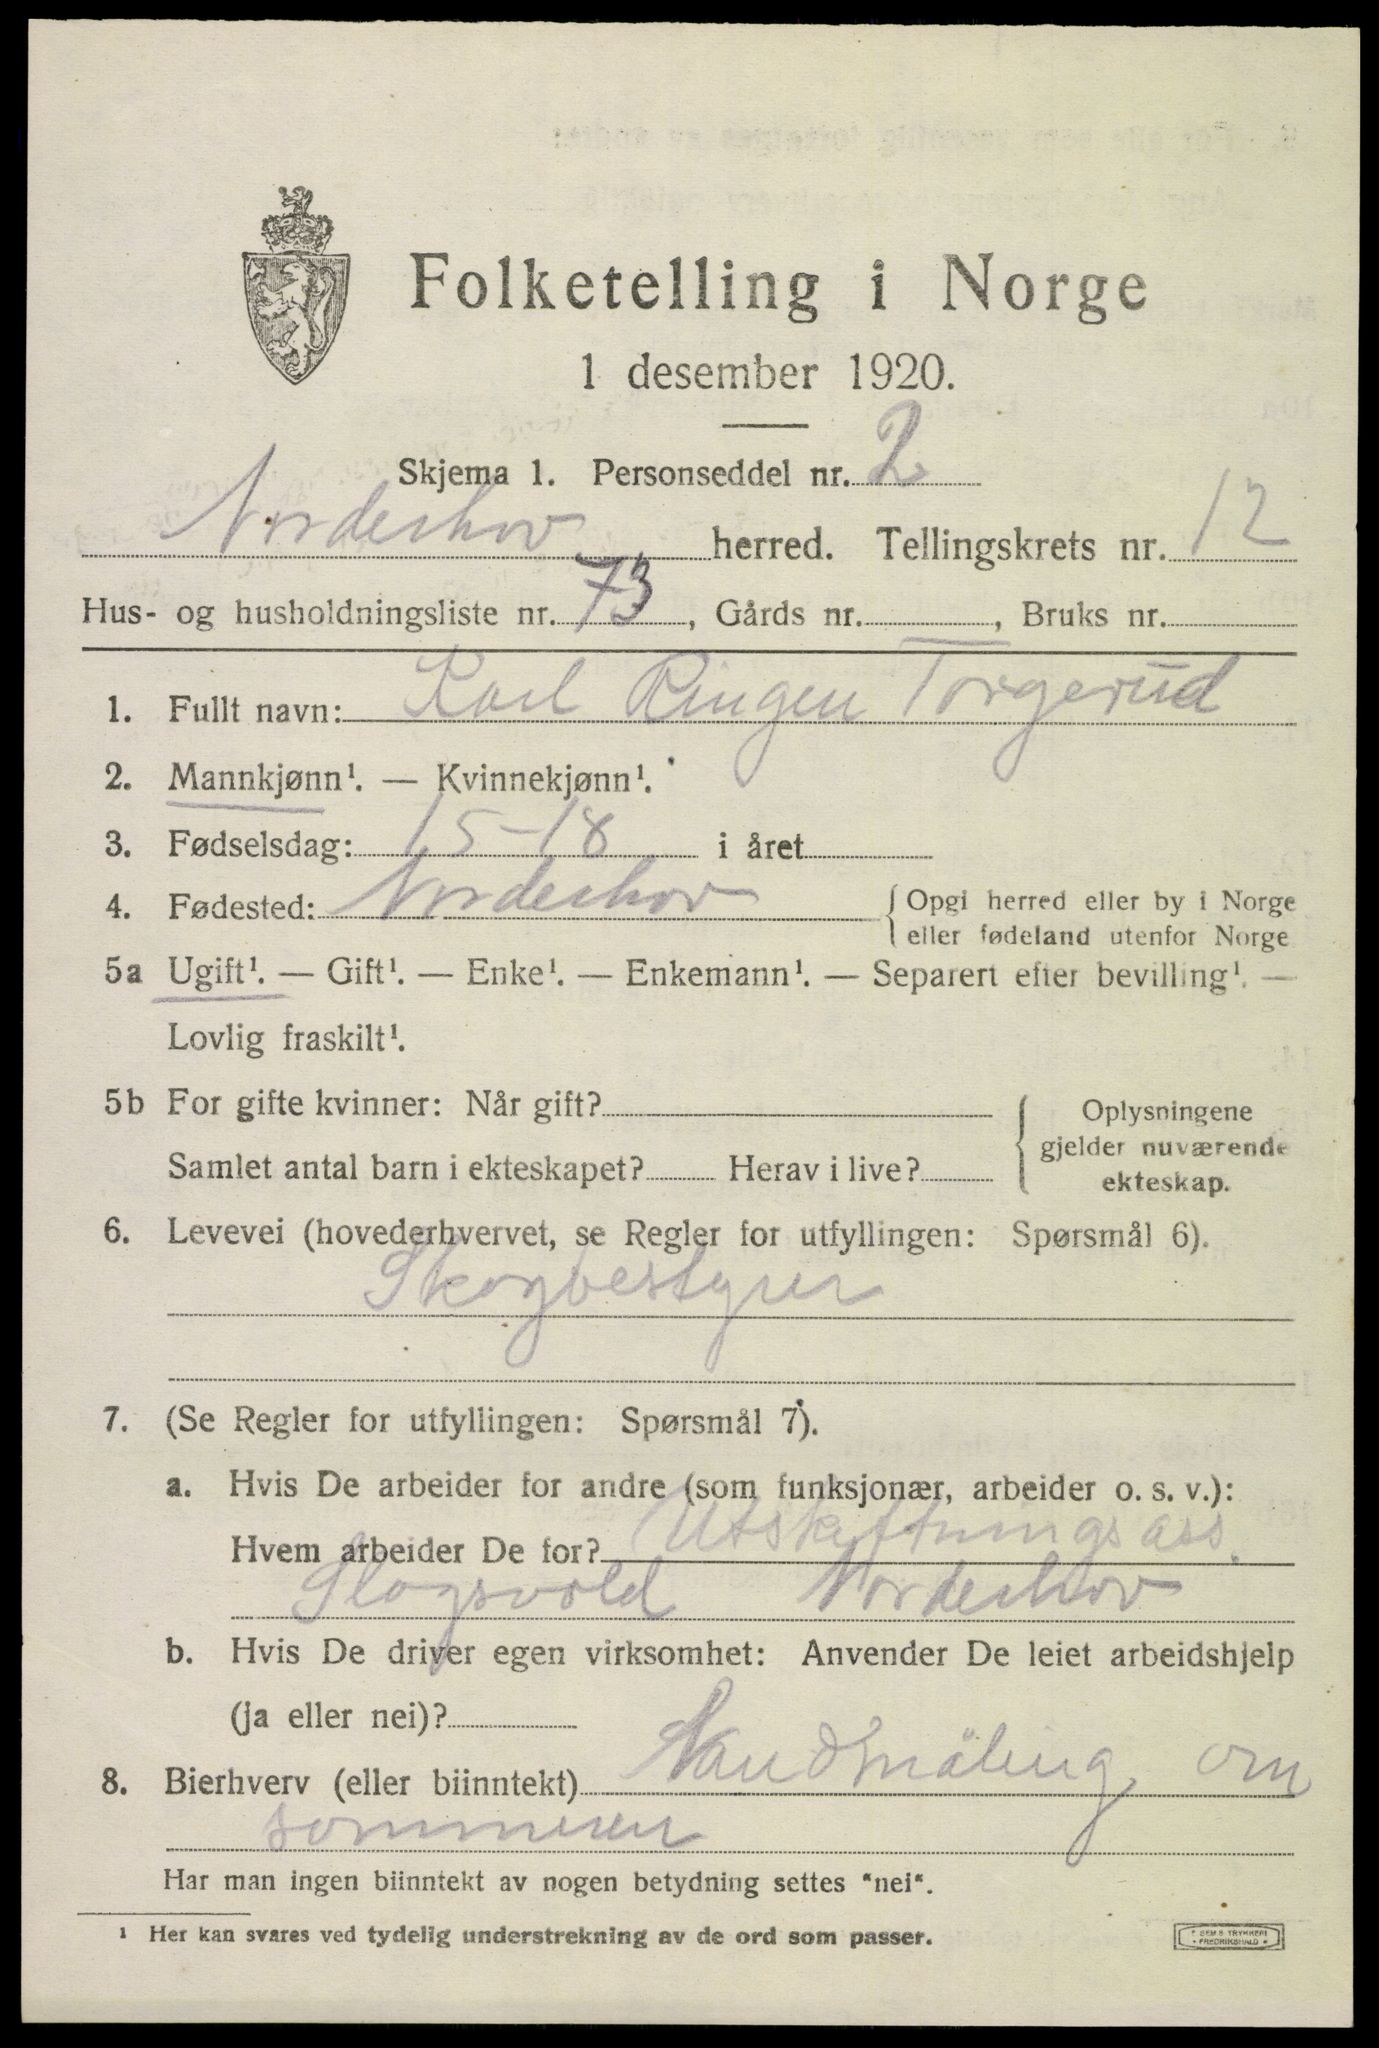 Folketelling i Norge
1 desember 1920.
Skjema 1. Personseddel nr. 2
Norderhov herred. Tellingskrets nr. 12
Hus- og husholdningsliste nr. 73, Gårds nr. , Bruks nr.
1. Fullt navn: Karl Ringen Torgerud
2. Mannkjønn¹. — Kvinnekjønn¹.
3. Fødselsdag: 15-18 i året
4. Fødested: Norderhov { Opgi herred eller by i Norge
eller fødeland utenfor Norge
5a Ugift¹. — Gift¹. — Enke¹. — Enkemann¹. — Separert efter bevilling¹. —
Lovlig fraskilt¹.
5b For gifte kvinner: Når gift? { Oplysningene
gjelder nuværende
Samlet antal barn i ekteskapet? Herav i live? ekteskap.
6. Levevei (hovederhvervet, se Regler for utfyllingen: Spørsmål 6).
Skogbestyrer
7. (Se Regler for utfyllingen: Spørsmål 7).
a. Hvis De arbeider for andre (som funksjonær, arbeider o. s. v.):
Hvem arbeider De for? Utskiftnings ass.
Slogsvold Norderhov
b. Hvis De driver egen virksomhet: Anvender De leiet arbeidshjelp
(ja eller nei)?
8. Bierhverv (eller biinntekt) om
sommeren
Har man ingen biinntekt av nogen betydning settes "nei".
¹ Her kan svares ved tydelig understrekning av de ord som passer.
* SEM & TRYKKERI
* FREDRIKSHALD *